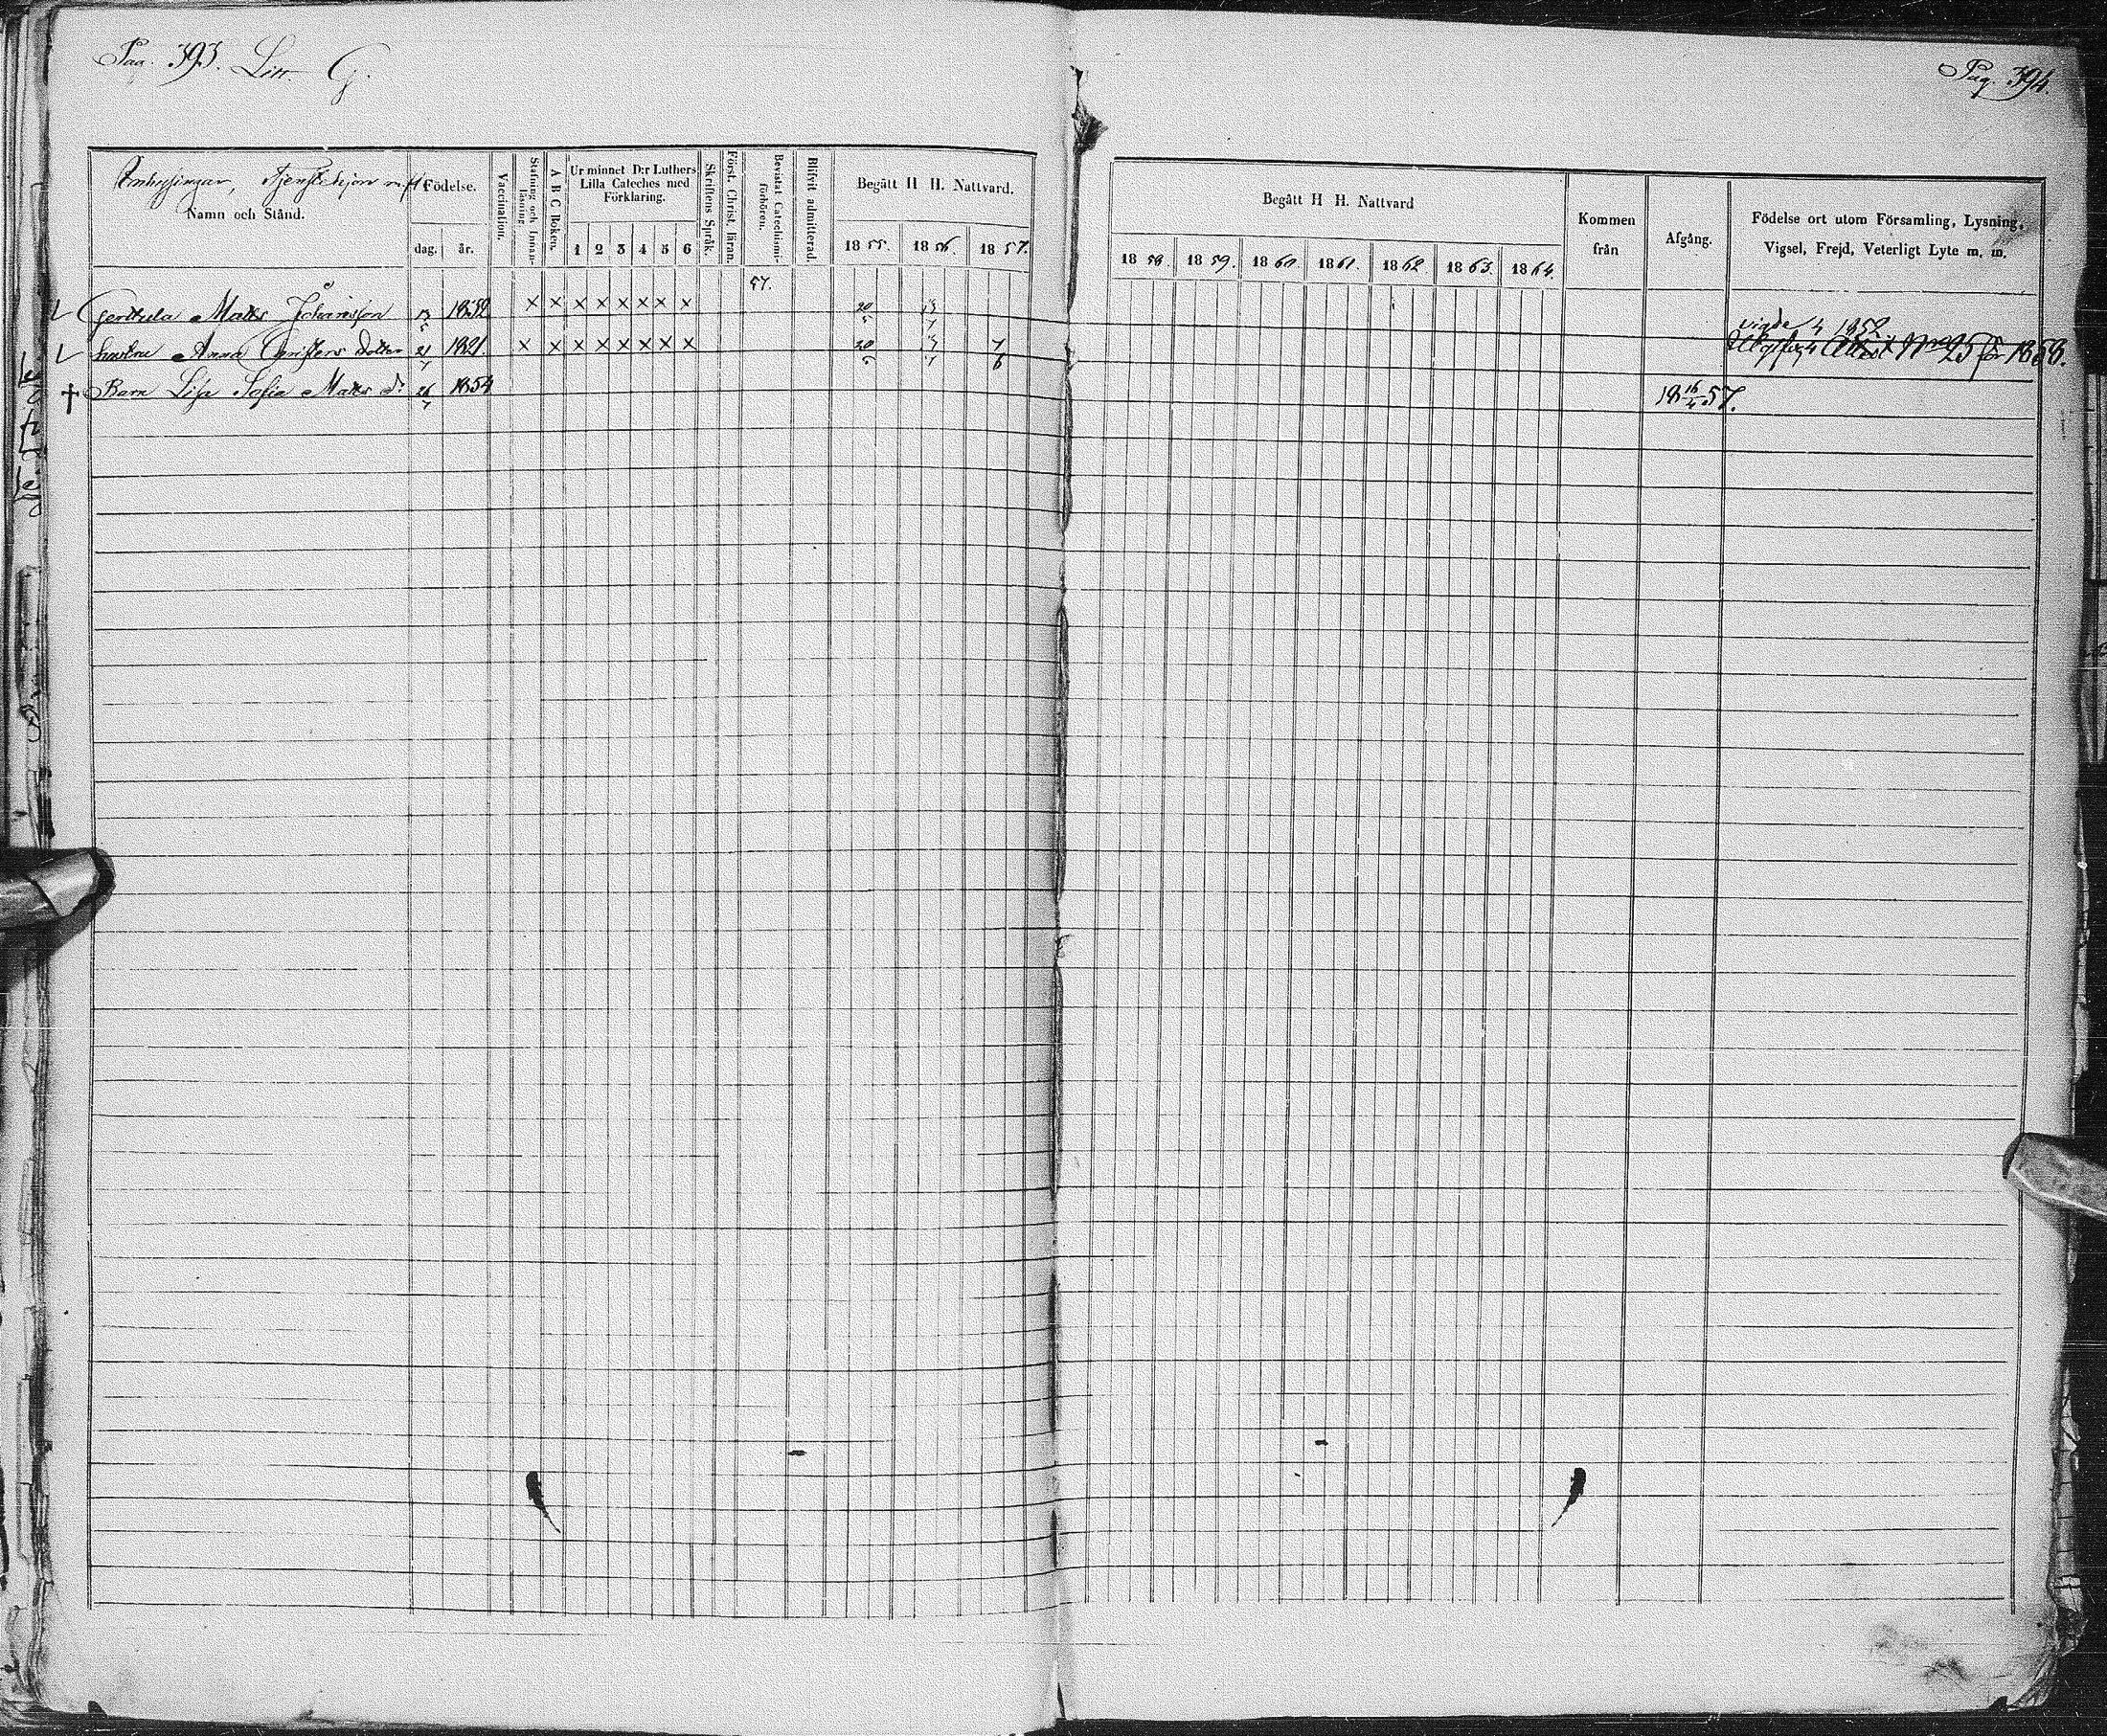 Pag. 393. Litt. G.
Pag. 394.
Inhysingar, Tjenstehjon m. fl.
Namn och Stånd.
Födelse.
dag. år.
Vaccination.
Stafning och Innanläsning.
A B C Boken.
Ur minnet D:r Luthers Lilla Cateches med Förklaring.
1 2 3 4 5 6
Skriftens Språk.
Först. Christ. läran.
Bevistat Catechismiförhören.
Blifvit admitterad.
Begått H H. Nattvard.
1855. 1856. 1857.
Begått H H. Nattvard
1858. 1859. 1860. 1861. 1862 1863. 1864.
Kommen från
Afgång.
Födelse ort utom Församling, Lysning, Vigsel, Frejd, Veterligt Lyte m. m.
57.
Matts Johansson × × × × × × × × 20/5
vigde 4 1852
hustru Anna Christers dotter 21 1821. × × × × × × × × 20 7/6
Attest Nro 25 för 1858.
† Barn Lisa Sofia Matts dr 26/7 1854 18 16/4 57.